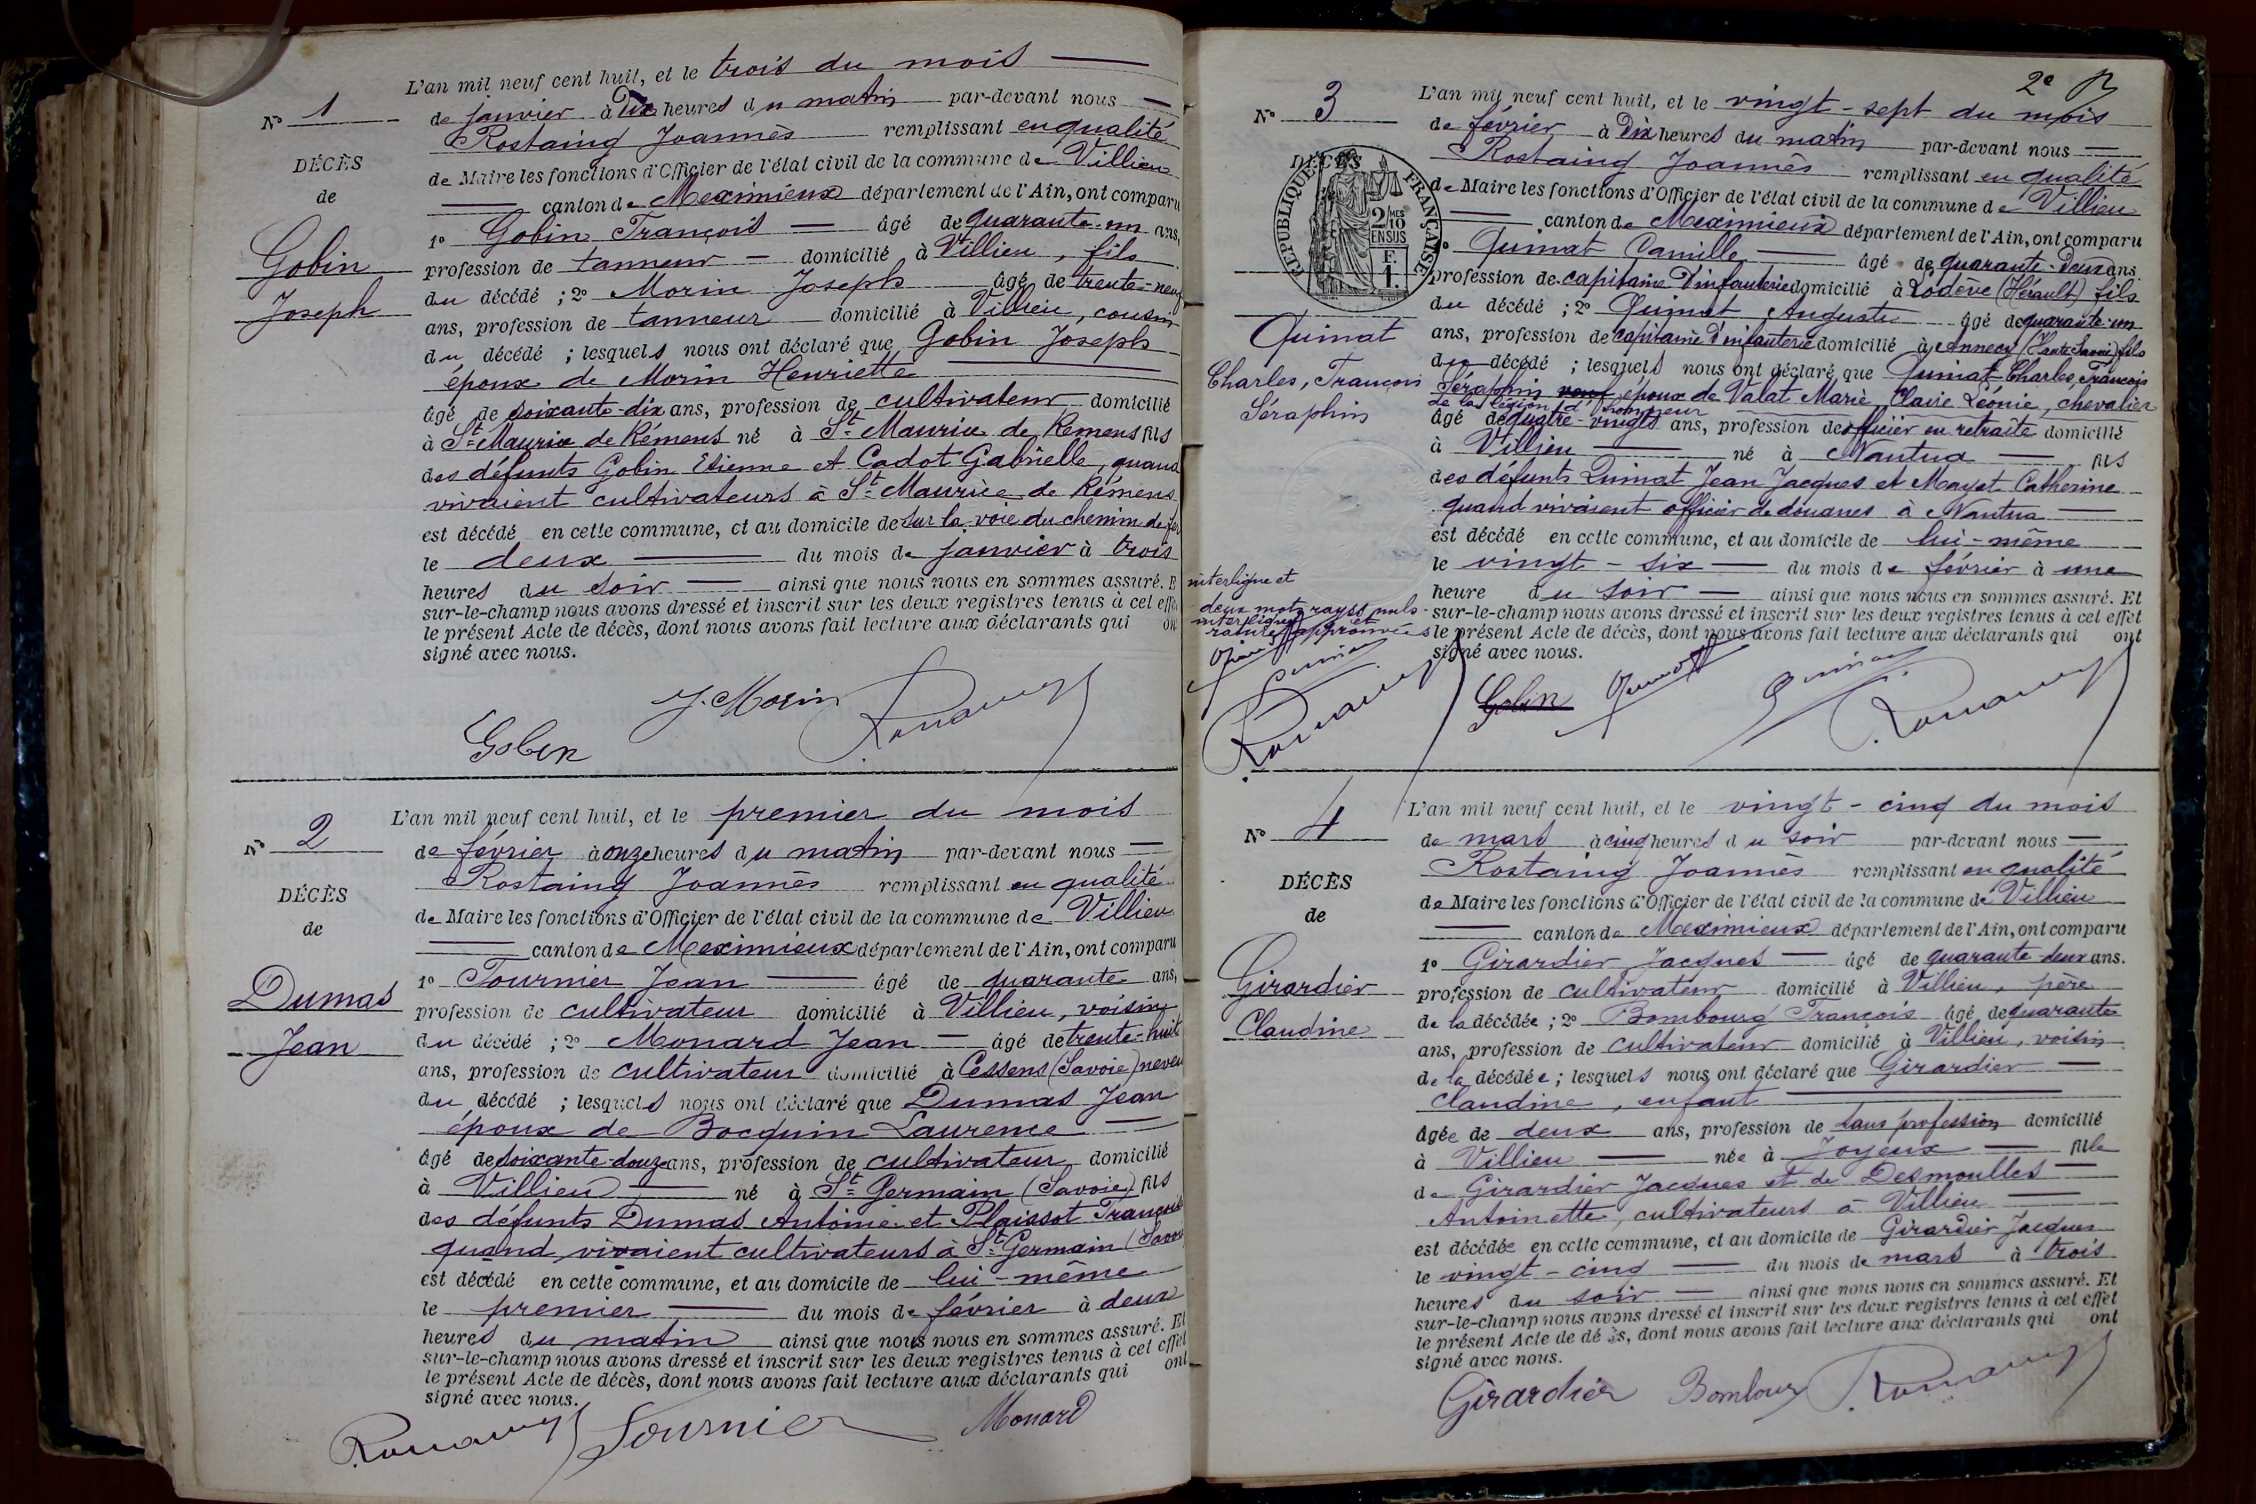 L'an mil neuf cent huit, et le trois du mois
N° 1
de janvier à Dix heures du matin par-devant nous
Rostaing Joannès remplissant en qualité
DÉCÈS
de Maire les fonctions d'Officier de l'état civil de la commune de Villieu
de
canton de Meximieux département de l'Ain, ont comparu
1° Gobin François âgé de quarante-un ans,
Gobin
profession de tanneur domicilié à Villieu, fils
Joseph
du décédé ; 2° Morin Joseph âgé de trente-neuf
ans, profession de tanneur domicilié à Villieu, cousin
du décédé ; lesquels nous ont déclaré que Gobin Joseph
époux de Morin Henriette
âgé de soixante-dix ans, profession de cultivateur domicilié
à St Maurice de Rémens né à St Maurice de Remens fils
des défunts Gobin Etienne et Cadot Gabrielle, quand
vivaient cultivateurs à St Maurice de Rémens
est décédé en cette commune, et au domicile de sur la voie du chemin de fer
le deux du mois de janvier à trois
heures du soir ainsi que nous nous en sommes assuré. E
sur-le-champ nous avons dressé et inscrit sur les deux registres tenus à cel effe
le présent Acte de décès, dont nous avons fait lecture aux déclarants qui on
signé avec nous.
J. Morin
Gobin
L'an mil neuf cent huit, et le premier du mois
N° 2
de février à onze heures du matin par-devant nous
Rostaing Joannès remplissant en qualité
DÉCÈS
de Maire les fonctions d'Officier de l'état civil de la commune de Villieu
de
canton de Meximieux département de l'Ain, ont comparu
1° Tournier Jean âgé de quarante ans,
Dumas
profession de cultivateur domicilié à Villieu, voisin
Jean
du décédé ; 2° Monard Jean âgé de trente-huit
ans, profession de cultivateur domicilié à Cessens (Savoie) neveu
du décédé ; lesquels nous ont déclaré que Dumas Jean
époux de Bocquin Laurence
âgé de soixante-douze ans, profession de cultivateur domicilié
à Villieu né à St Germain (Savoie) fils
des défunts Dumas Antoine et Plaissot
quand vivaient cultivateurs à St Germain (Savoie
est décédé en cette commune, et au domicile de lui-même
le premier du mois de février à deux
heures du matin ainsi que nous nous en sommes assuré. Et
sur-le-champ nous avons dressé et inscrit sur les deux registres tenus à cel effet
le présent Acte de décès, dont nous avons fait lecture aux déclarants qui ont
signé avec nous.
Tournier Monard
2e
L'an mil neuf cent huit, et le vingt-sept du mois
N° 3
de février à Dix heures du matin par-devant nous
Rostaing Joannès remplissant en qualité
DÉCÈS
RÉPUBLIQUE FRANÇAISE
2/10 MES
EN SUS
F.
1.
de Maire les fonctions d'Officier de l'état civil de la commune de Villieu
canton de Meximieux département de l'Ain, ont comparu
Quinat Camille âgé de quarante-deux ans
profession de capitaine d'infanterie domicilié à Lodève (Hérault) fils
du décédé ; 2° Quinat Auguste âgé de quarante-un
Quinat
Charles, François
Séraphin
ans, profession de capitaine d'infanterie domicilié à Annecy (Haute Savoie) fils
du décédé ; lesquels nous ont déclaré que Quinat Charles, François
Séraphin veuf époux de Valat Marie, Clavie Léonie, chevalier
de la légion d'honneur
âgé de quatre-vingts ans, profession de officier en retraite domicilié
à Villieu né à Nantua fils
des défunts Quinat Jean Jacques et Mayet Catherine
quand vivaient officier de douanes à Nantua
est décédé en cette commune, et au domicile de lui-même
le vingt-six du mois de février à une
heure du soir ainsi que nous nous en sommes assuré. Et
sur-le-champ nous avons dressé et inscrit sur les deux registres tenus à cel effet
le présent Acte de décès, dont nous avons fait lecture aux déclarants qui ont
signé avec nous.
interligne et
deux mots rayés nuls
interligne et
rature approuvés
Gobin
L'an mil neuf cent huit, et le vingt-cinq du mois
N° 4
de mars à cinq heures du soir par-devant nous
Rostaing Joannès remplissant en qualité
DÉCÈS
de Maire les fonctions d'Officier de l'état civil de la commune de Villieu
de
canton de Meximieux département de l'Ain, ont comparu
1° Girardier Jacques âgé de quarante-deux ans.
Girardier
profession de cultivateur domicilié à Villieu, père
Claudine
de la décédée ; 2° Bombourg François âgé de quarante
ans, profession de cultivateur domicilié à Villieu, voisin
de la décédée ; lesquels nous ont déclaré que Girardier
Claudine, enfant
âgée de deux ans, profession de sans profession domicilié
à Villieu née à Joyeux fille
de Girardier Jacques et de Desmoulles
Antoinette, cultivateurs à Villieu
est décédée en cette commune, et au domicile de Girardier Jacques
le vingt-cinq du mois de mars à trois
heures du soir ainsi que nous nous en sommes assuré. Et
sur-le-champ nous avons dressé et inscrit sur les deux registres tenus à cel effet
le présent Acte de décès, dont nous avons fait lecture aux déclarants qui ont
signé avec nous.
Girardier Bombourg